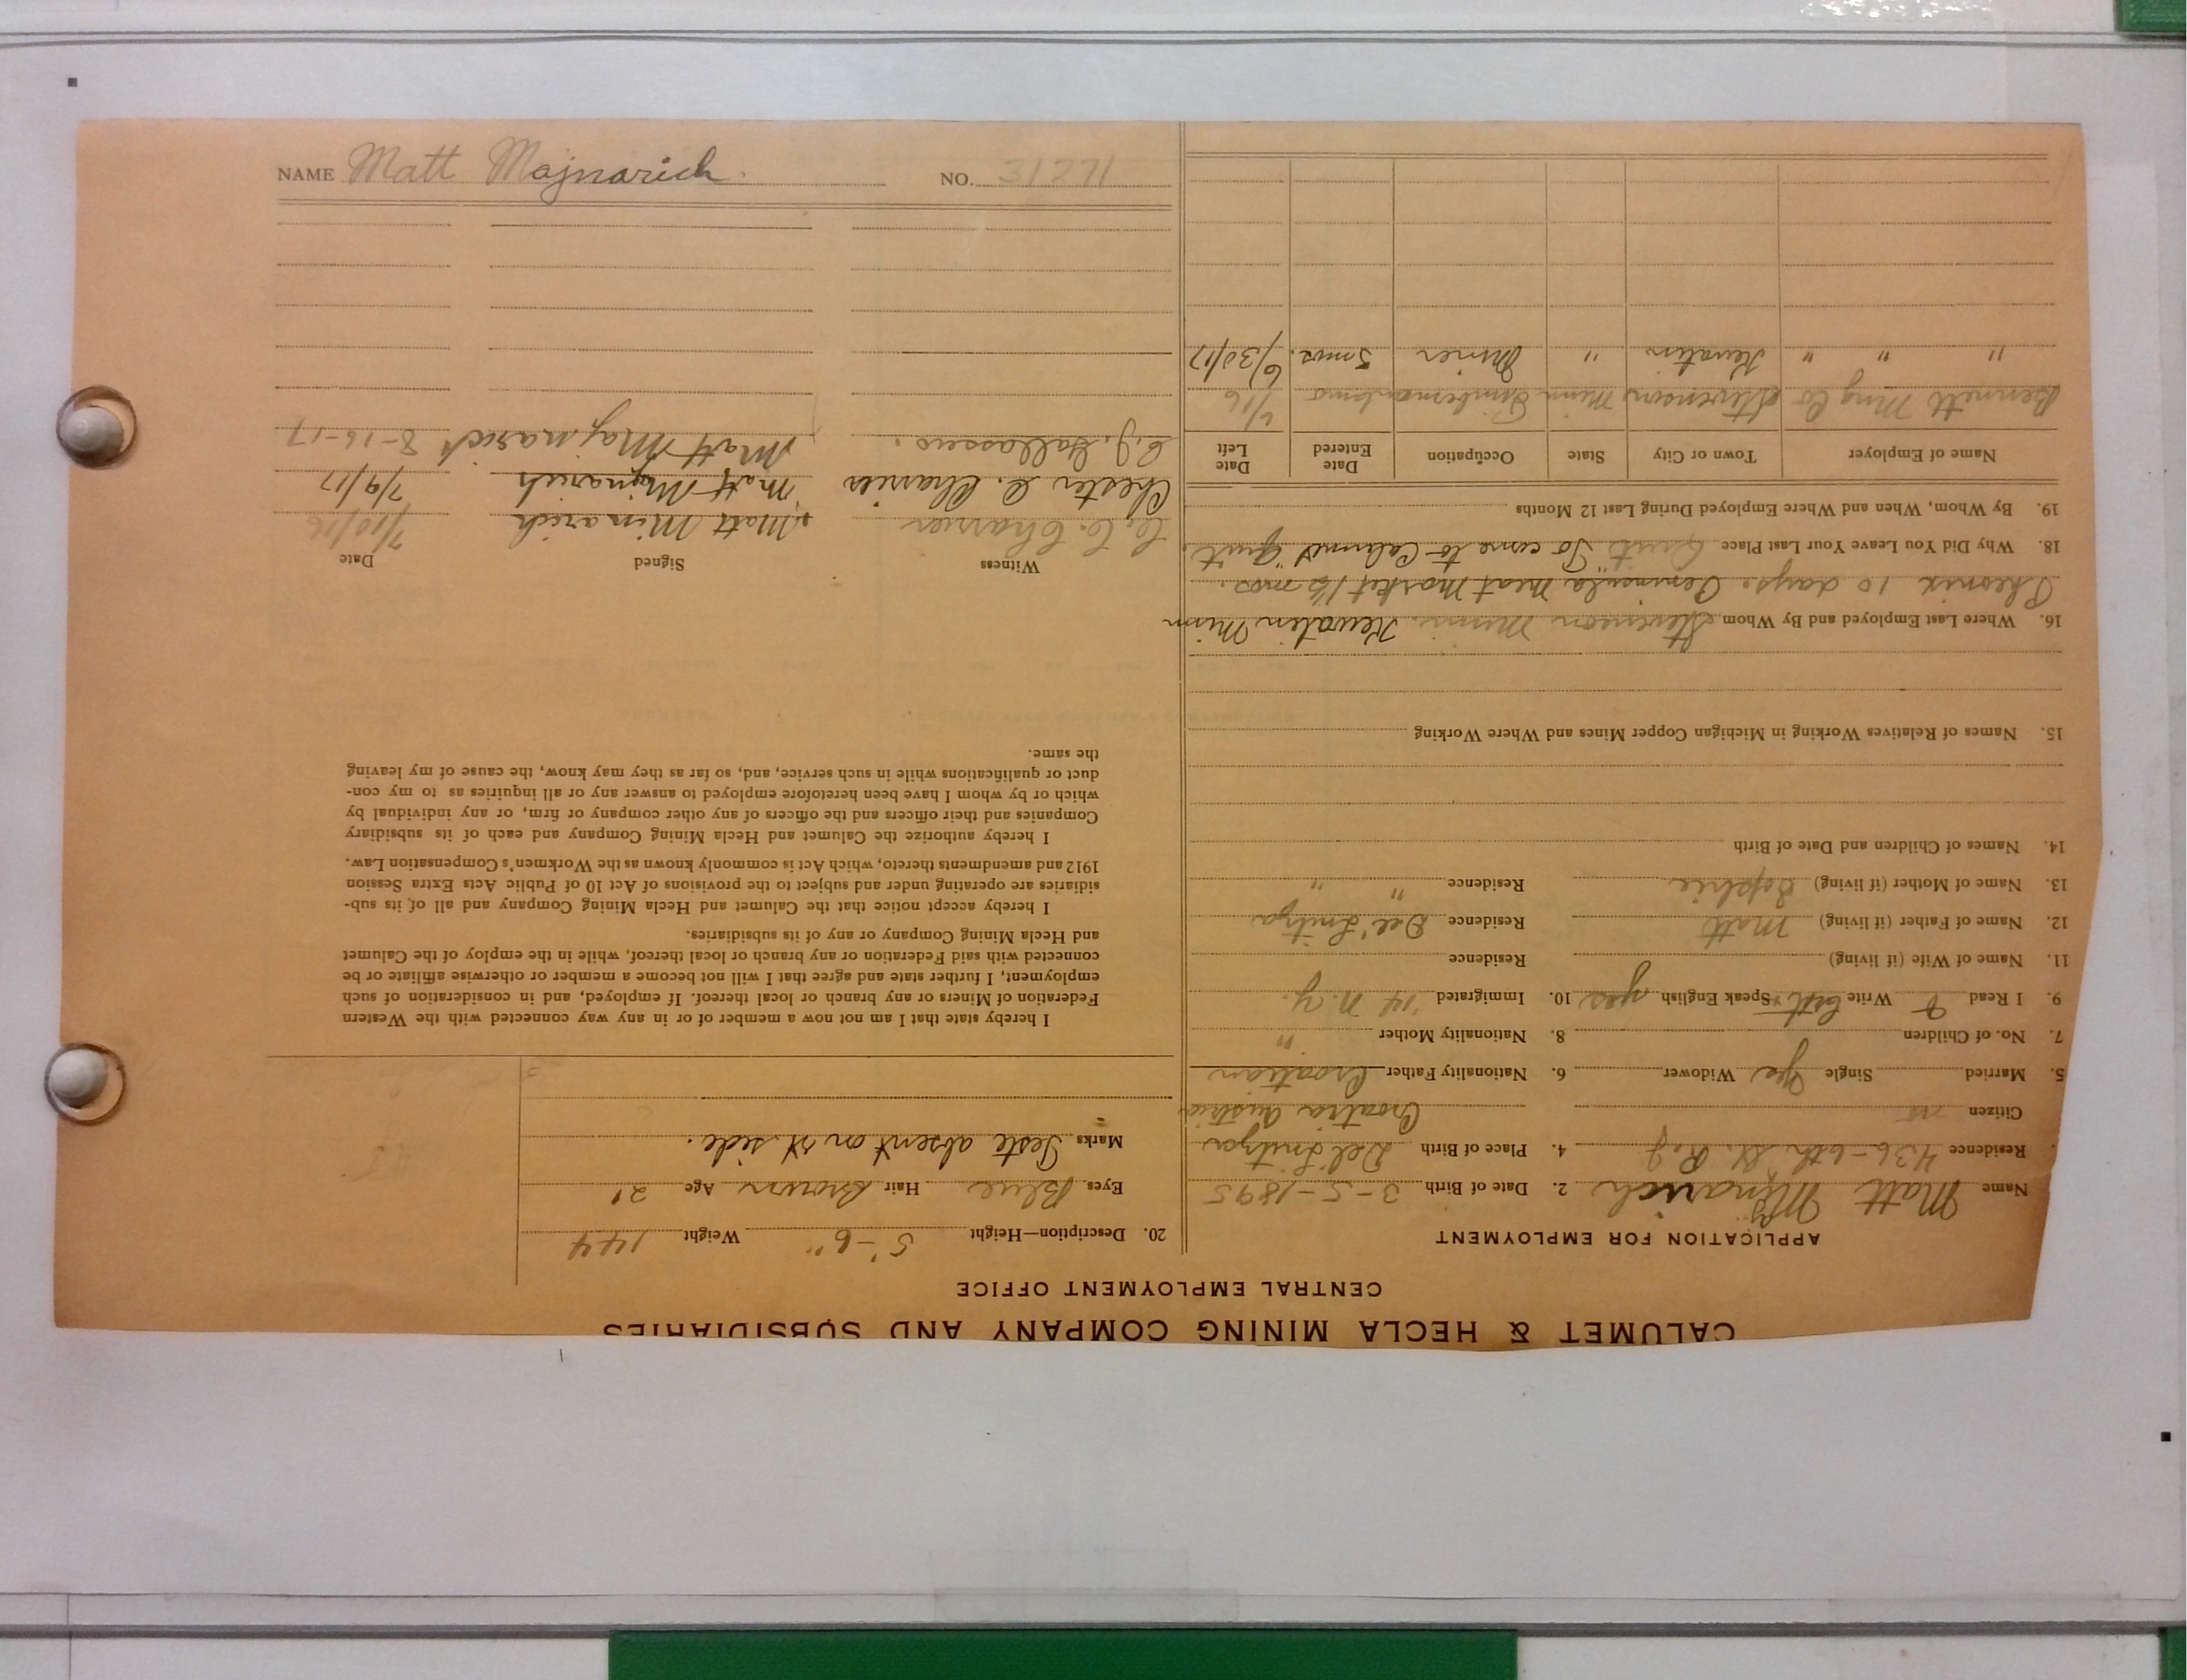 CALUMET & HECLA MINING COMPANY AND SUBSIDIARIES
CENTRAL EMPLOYMENT OFFICE
APPLICATION FOR EMPLOYMENT
Name Matt Majnarich 2. Date of Birth 3-5-1895
Residence 436-6th St. 4. Place of Birth
Citizen no Croatia Austria
5. Married Single yes Widower 6. Nationality Father Croatian
7. No. of Children 8. Nationality Mother "
9. I Read & Write Speak English yes 10. Immigrated '14 N.Y.
11. Name of Wife (if living) Residence
12. Name of Father (if living) Matt Residence
13. Name of Mother (if living) Sophie Residence " "
14. Names of Children and Date of Birth
15. Names of Relatives Working in Michigan Copper Mines and Where Working
16. Where Last Employed and By Whom Stevenson Minn. Kewatin Minn
10 days. Peninsula Meat Market 1½ mos.
18. Why Did You Leave Your Last Place Quit To come to Calumet Quit.
19. By Whom, When and Where Employed During Last 12 Months
Name of Employer Town or City State Occupation Date Entered Date Left
Bennett Mng Co Stevenson Minn Timberman 6/16
" " " Kewatin " Miner 5 mos. 6/30/17
20. Description—Height 5'-6" Weight 144
Eyes Blue Hair Brown Age 21
Marks Teste absent on rt side.
I hereby state that I am not now a member of or in any way connected with the Western
Federation of Miners or any branch or local thereof. If employed, and in consideration of such
employment, I further state and agree that I will not become a member or otherwise affiliate or be
connected with said Federation or any branch or local thereof, while in the employ of the Calumet
and Hecla Mining Company or any of its subsidiaries.
I hereby accept notice that the Calumet and Hecla Mining Company and all of its sub-
sidiaries are operating under and subject to the provisions of Act 10 of Public Acts Extra Session
1912 and amendments thereto, which Act is commonly known as the Workmen's Compensation Law.
I hereby authorize the Calumet and Hecla Mining Company and each of its subsidiary
Companies and their officers and the officers of any other company or firm, or any individual by
which or by whom I have been heretofore employed to answer any or all inquiries as to my con-
duct or qualifications while in such service, and, so far as they may know, the cause of my leaving
the same.
Witness Signed Date
C. C. Charier Matt Minarich 7/10/16
Chester C. Charier Matt Majnarich 7/9/17
C. J. Matt Majnarich 8-16-17
NAME Matt Majnarich. NO. 31271